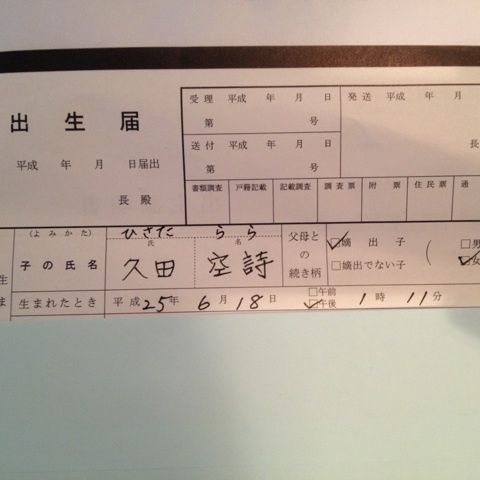 出生届
平成 年 月 日届出
長 殿
受理 平成 年 月 日
第 号
送付 平成 年 月 日
第 号
発送 平成 年 月
長
書類調査 戸籍記載 記載調査 調査票 附票 住民票 通
生ま
(よみかた) ひさだ らら
子の氏名 氏 久田 名 空詩
父母との続き柄 ☑嫡出子 □嫡出でない子 ( □男 ☑女
生まれたとき 平成25年 6月 18日 □午前 ☑午後 1時 11分